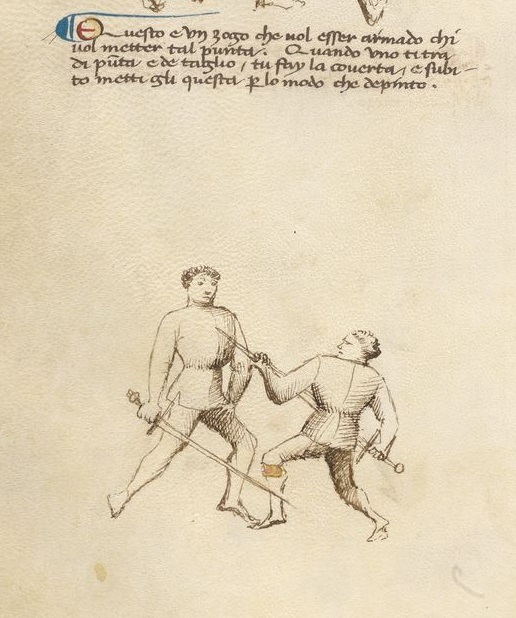 Questo e un zogo che vol esser armado chi
vol metter tal punta. Quando uno ti tra
di pūta e de taglio, tu fay la coverta, e subi-
to metti gli questa ꝑ lo modo che depinto.